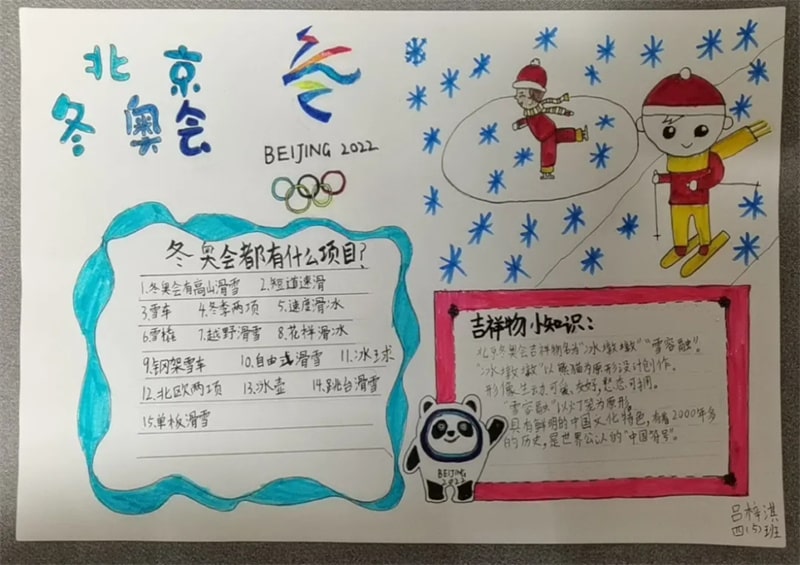 北京
冬奥会
BEIJING 2022
冬奥会都有什么项目?
1.冬奥会有高山滑雪 2.短道速滑
3.雪车 4.冬季两项 5.速度滑冰
6.雪橇 7.越野滑雪 8.花样滑冰
9.钢架雪车 10.自由式滑雪 11.冰球
12.北欧两项 13.冰壶 14.跳台滑雪
15.单板滑雪
吉祥物小知识:
北京冬奥会吉祥物名为“冰墩墩”“雪容融”。
“冰墩墩”以熊猫为原形设计创作。
形像生动可爱、友好,憨态可掬。
“雪容融”以灯笼为原形。
具有鲜明的中国文化特色,有着2000年多
的历史,是世界公认的“中国符号”。
BEIJING
2022
吕梓淇
四(5)班